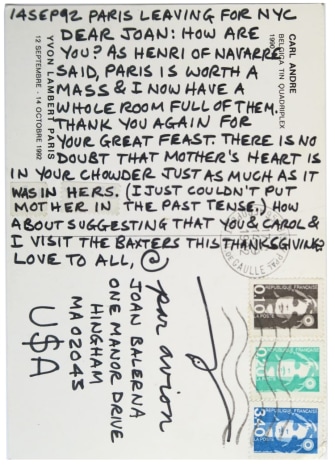 14SEP92 PARIS LEAVING FOR NYC
DEAR JOAN: HOW ARE
YOU? AS HENRI OF NAVARRE
SAID, PARIS IS WORTH A
MASS & I NOW HAVE A
WHOLE ROOM FULL OF THEM.
THANK YOU AGAIN FOR
YOUR GREAT FEAST. THERE IS NO
DOUBT THAT MOTHER'S HEART IS
IN YOUR CHOWDER JUST AS MUCH AS IT
WAS IN HERS. (I JUST COULDN'T PUT
MOTHER IN THE PAST TENSE.) HOW
ABOUT SUGGESTING THAT YOU & CAROL &
I VISIT THE BAXTERS THIS THANKSGIVING?
LOVE TO ALL, @
CARL ANDRE
BELGICA TIN QUADRIPLEX
1990
YVON LAMBERT PARIS
12 SEPTEMBRE - 14 OCTOBRE 1992
par avion
JOAN BALERNA
ONE MANOR DRIVE
HINGHAM
MA 02043
U$A
DE GAULLE
RÉPUBLIQUE FRANÇAISE
0,10
LA POSTE
RÉPUBLIQUE FRANÇAISE
0,20
LA POSTE
RÉPUBLIQUE FRANÇAISE
3,40
LA POSTE